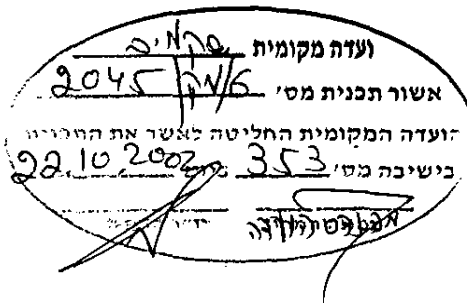 ועדה מקומית שקמים
אשור תכנית מס׳ 6/מק/2045
הועדה המקומית החליטה לאשר את התכנית
בישיבה מס׳ 353 מיום 22.10.2002